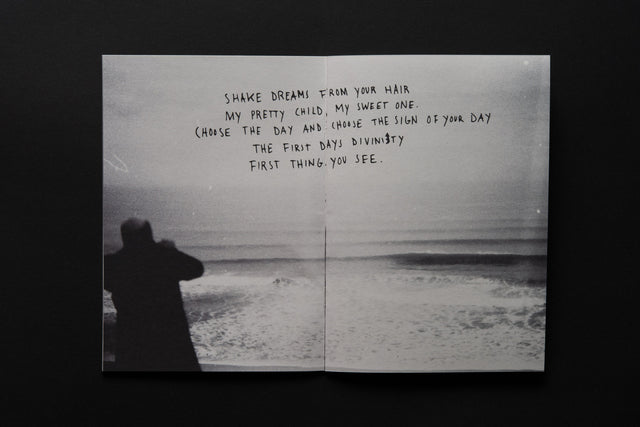 SHAKE DREAMS FROM YOUR HAIR
MY PRETTY CHILD, MY SWEET ONE.
CHOOSE THE DAY AND CHOOSE THE SIGN OF YOUR DAY
THE FIRST DAYS DIVINISTY
FIRST THING. YOU SEE.